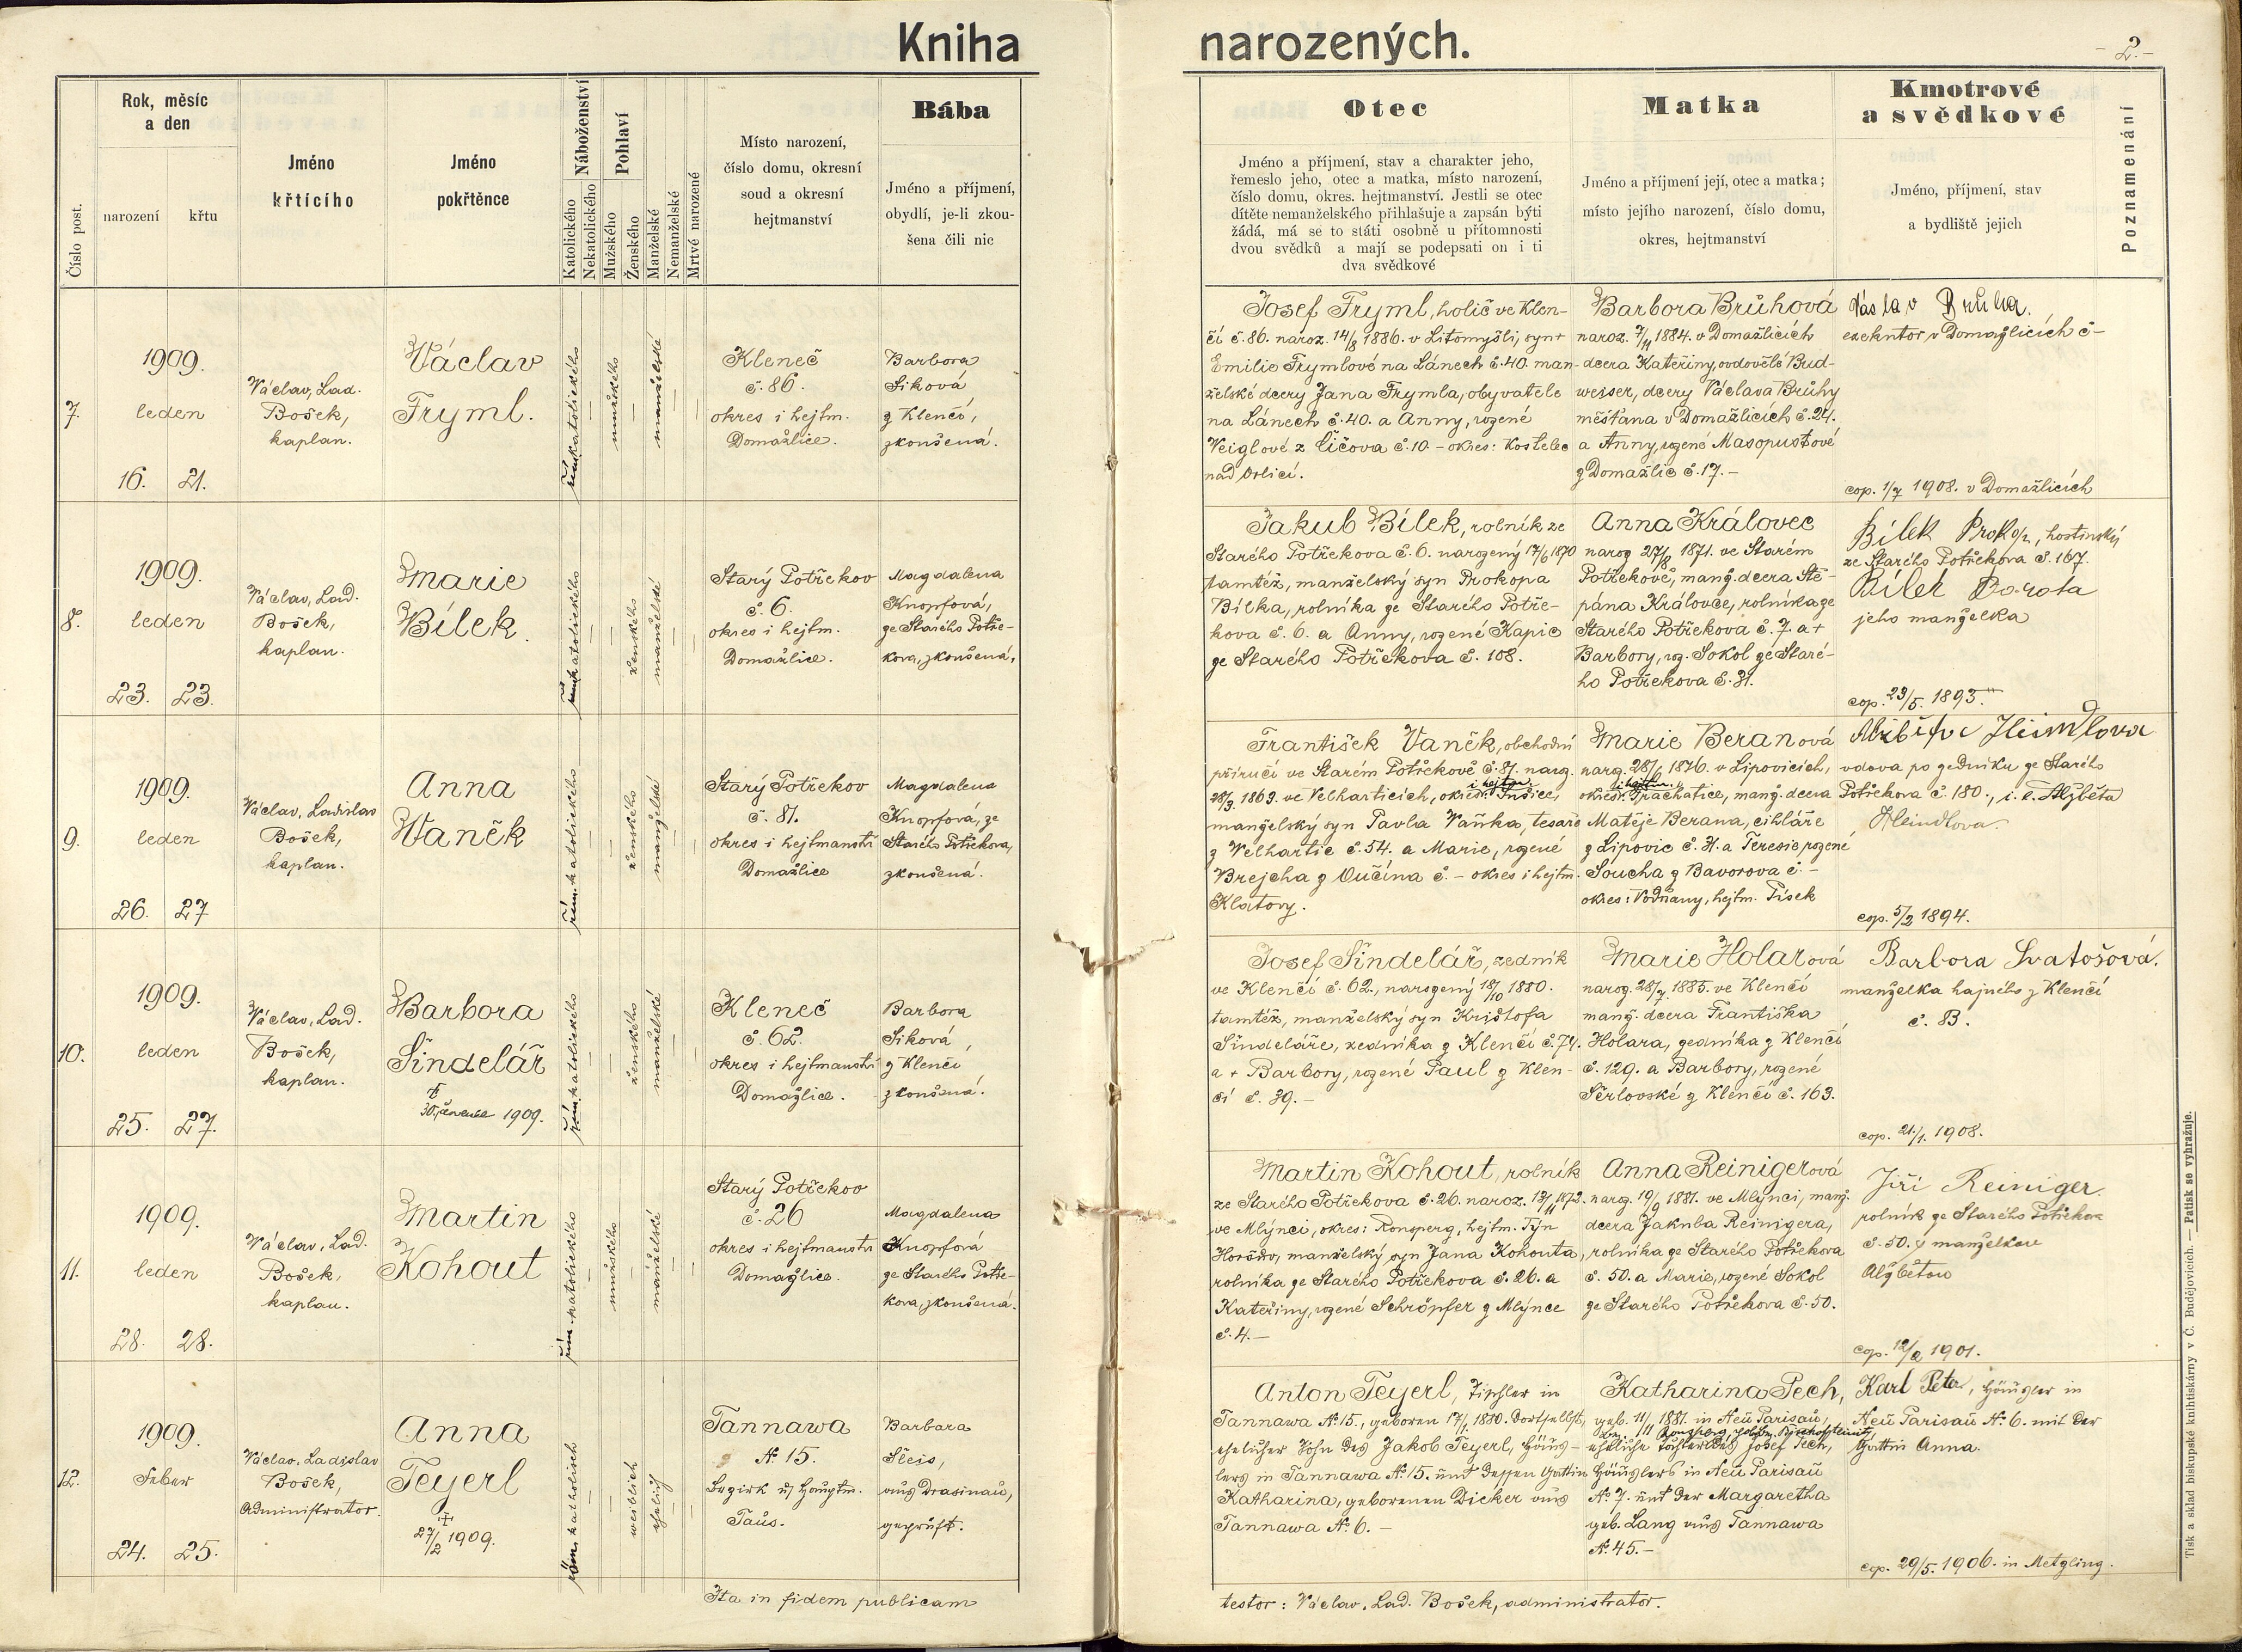 Kniha
narozených.
- 2. -
Číslo post.
Rok, měsíc
a den
narození
křtu
Jméno
křtícího
Jméno
pokřtěnce
Náboženství
Katolického
Nekatolického
Pohlaví
Mužského
Ženského
Manželské
Nemanželské
Mrtvé narozené
Místo narození,
číslo domu, okresní
soud a okresní
hejtmanství
Bába
Jméno a příjmení,
obydlí, je-li zkou-
šena čili nic
Otec
Jméno a příjmení, stav a charakter jeho,
řemeslo jeho, otec a matka, místo narození,
číslo domu, okres. hejtmanství. Jestli se otec
dítěte nemanželského přihlašuje a zapsán býti
žádá, má se to státi osobně u přítomnosti
dvou svědků a mají se podepsati on i ti
dva svědkové
Matka
Jméno a příjmení její, otec a matka;
místo jejího narození, číslo domu,
okres, hejtmanství
Kmotrové
a svědkové
Jméno, příjmení, stav
a bydliště jejich
Poznamenání
7.
1909.
leden
16. 21.
Václav, Lad.
Bošek,
kaplan.
Václav
Tryml.
řím. katolického
mužského
manželské
Kleneč
č. 86.
okres i hejtm.
Domažlice.
Barbora
Siková
z Klenčí,
zkoušená.
Josef Tryml, holič ve Klen-
čí č. 86. naroz. 14/8 1886. v Litomyšli, syn +
Emilie Trymlové na Lánech č. 40. man-
želské dcery Jana Trymla, obyvatele
na Lánech č. 40. a Anny, rozené
Veiglové z Číčova č. 10 - okres: Kostelec
nad Orlicí.
Barbora Brůhová
naroz. 7/11 1884. v Domažlicích
dcera Kateřiny, ovdovělé Bud-
weiser, dcery Václava Brůhy
měšťana v Domažlicích č. 24.
a Anny, rozené Masopustové
z Domažlic č. 17. -
Václav Brůha.
exekutor v Domažlicích č -
cop. 1/7 1908. v Domažlicích
8.
1909.
leden
23. 23.
Václav, Lad.
Bošek,
kaplan.
Marie
Bílek.
řím. katolického
ženského
manželské
Starý Potřekov
č. 6.
okres i hejtm.
Domažlice.
Magdalena
Knopfová,
ze Starého Potře-
kova, zkoušená,
Jakub Bílek, rolník ze
Starého Potřekova č. 6. narozený 17/6 1870
tamtéž, manželský syn Prokopa
Bílka, rolníka ze Starého Potře-
kova č. 6. a Anny, rozené Kapic
ze Starého Potřekova č. 108.
Anna Královec
naroz. 1871. ve Starém
Potřekově, manž. dcera Ště-
pána Královce, rolníka ze
Starého Potřekova č. 7. a +
Barbory, roz. Sokol ze Staré-
ho Potřekova č. 31.
Bílek Prokop, hostinský
ze Starého Potřekova č. 167.
Bílek Dorota
jeho manželka
cop. 23/5. 1893.
9.
1909.
leden
26. 27
Václav, Ladislav
Bošek,
kaplan.
Anna
Vaněk
řím. katolického
ženského
manželské
Starý Potřekov
č. 81.
okres i hejtmanství
Domažlice
Magdalena
Knopfová, ze
Starého Potřekova,
zkoušená.
František Vaněk, obchodní
příručí ve Starém Potřekově č. 81. naroz.
28/3. 1869. ve Velharticích, okres i hejtm. Sušice,
manželský syn Pavla Vaňka, tesaře
z Velhartic č. 54. a Marie, rozené
Brejcha z Vučína č. - okres i hejtm.
Klatovy.
Marie Beranová
naroz. 28/6 1876. v Lipovicích,
okres i hejtm. Prachatice, manž. dcera
Matěje Berana, cihláře
z Lipovic č. 31. a Teresie rozené
Soucha z Bavorova č. -
okres: Vodňany, hejtm. Písek
Alžběta Heindlova
vdova po zedníku ze Starého
Potřekova č. 180., i. e. Alžběta
Heindlova.
cop. 5/2 1894.
10.
1909.
leden
25. 27.
Václav, Lad.
Bošek,
kaplan.
Barbora
Šindelář
†
30. července 1909.
řím. katolického
ženského
manželské
Kleneč
č. 62.
okres i hejtmanství
Domažlice.
Barbora
Siková,
z Klenčí
zkoušená.
Josef Šindelář, zedník
ve Klenčí č. 62., narozený 18/10 1880.
tamtéž, manželský syn Krištofa
Šindeláře, zedníka z Klenčí č. 74.
a + Barbory, rozené Paul z Klen-
čí č. 39. -
Marie Holarová
naroz. 28/7. 1885. ve Klenčí
manž. dcera Františka
Holara, zedníka z Klenčí
č. 129. a Barbory, rozené
Šerlovské z Klenčí č. 163.
Barbora Svatošová.
manželka hajného z Klenčí
č. 83.
cop. 21./1. 1908.
11.
1909.
leden
28. 28.
Václav, Lad.
Bošek,
kaplan.
Martin
Kohout
řím. katolického
mužského
manželské
Starý Potřekov
č. 26
okres i hejtmanství
Domažlice.
Magdalena
Knopfová
ze Starého Potře-
kova, zkoušená.
Martin Kohout, rolník
ze Starého Potřekova č. 26. naroz. 13/11 1872.
ve Mlýnci, okres: Ronsperg, hejtm. Týn
Horšův, manželský syn Jana Kohouta,
rolníka ze Starého Potřekova č. 26. a
Kateřiny, rozené Schröpfer z Mlýnce
č. 4. -
Anna Reinigerová
naroz. 19/9 1881. ve Mlýnci, manž.
dcera Jakuba Reinigera,
rolníka ze Starého Potřekova
č. 50. a Marie, rozené Sokol
ze Starého Potřekova č. 50.
Jiří Reiniger
rolník ze Starého Potřekova
č. 50. s manželkou
Alžbětou
cop. 12/2 1901.
12.
1909.
Feber
24. 25.
Václav, Ladislav
Bošek,
Administrator.
Anna
Teyerl
†
27/2 1909.
röm. katholisch
weiblich
ehelich
Tannawa
No 15.
Bezirk u. Hauptm.
Taus.
Barbara
Sleis,
aus Drasinau,
geprüft.
Anton Teyerl, Tischler in
Tannawa No 15., geboren 17/1. 1880. dortselbst,
ehelicher Sohn des Jakob Teyerl, Häus-
lers in Tannawa No 15. und dessen Gattin
Katharina, geborenen Dicker aus
Tannawa No 6. -
Katharina Pech,
geb. 11/11 1881. in Neu Parisau,
Bez. Ronsperg, Hptm. Bischofteinitz,
eheliche Tochter des Josef Pech,
Häuslers in Neu Parisau
No 7. und der Margaretha
geb. Lang aus Tannawa
No 45. -
Karl Peter, Häusler in
Neu Parisau No 6. mit der
Gattin Anna.
cop. 29/5. 1906. in Metzling.
Ita in fidem publicam
testor: Václav, Lad. Bošek, administrator.
Tisk a sklad biskupské knihtiskárny v Č. Budějovicích. — Patisk se vyhražuje.